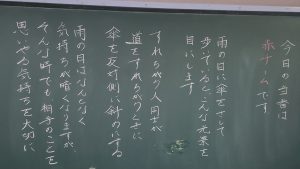 今日の当番は
赤チームです
雨の日に傘をさして
歩いているとこんな光景を
目にします
すれちがう人同士が
道をすれちがうときに
傘を反対側に斜めにする
雨の日はなんとなく
気持ちが暗くなりますが、
そんな時でも相手のことを
思いやる気持ちを大切に